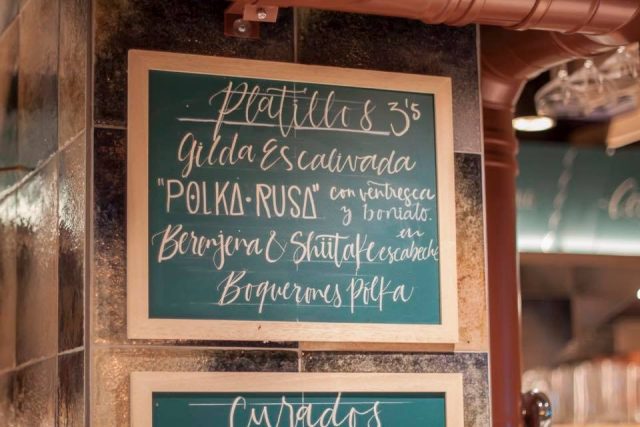 Platillos 3'5
Gilda Escalivada
"POLKA·RUSA" con ventresca
y boniato.
Berenjena & Shiitake en escabeche
Boquerones Polka
Curados